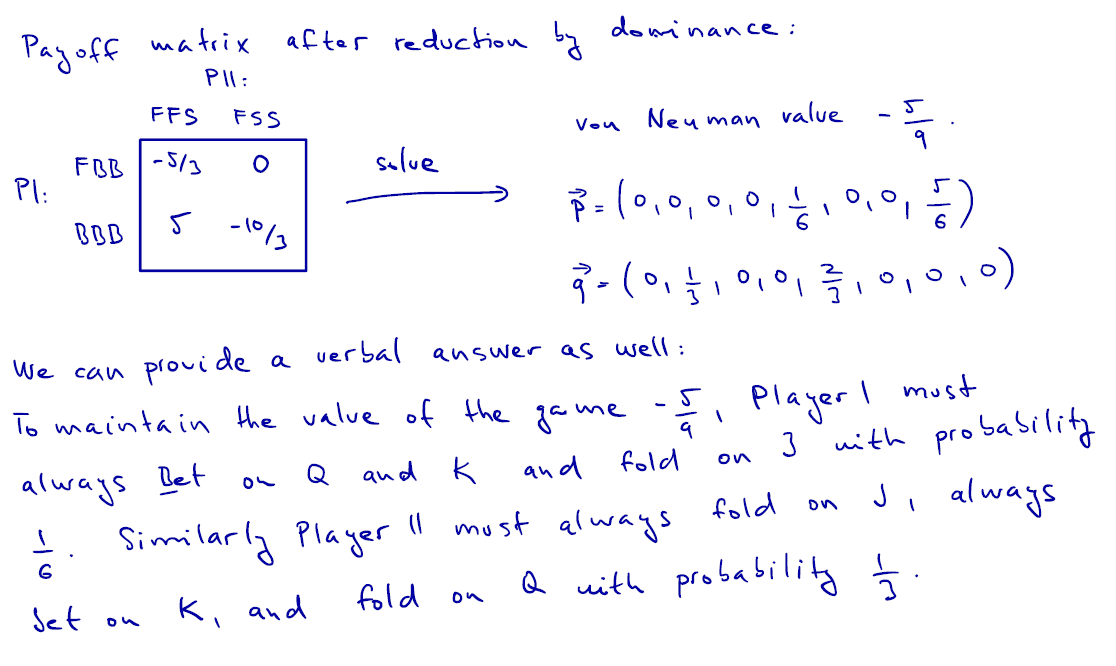 Payoff matrix after reduction by dominance:
PII:
FFS FSS
PI:
FBB -5/3 0
BBB 5 -10/3
solve
von Neuman value -5/9.
p⃗ = (0, 0, 0, 0, 1/6, 0, 0, 5/6)
q⃗ = (0, 1/3, 0, 0, 2/3, 0, 0, 0)
We can provide a verbal answer as well:
To maintain the value of the game -5/9, Player I must
always Bet on Q and K and fold on J with probability
1/6. Similarly Player II must always fold on J, always
Set on K, and fold on Q with probability 1/3.